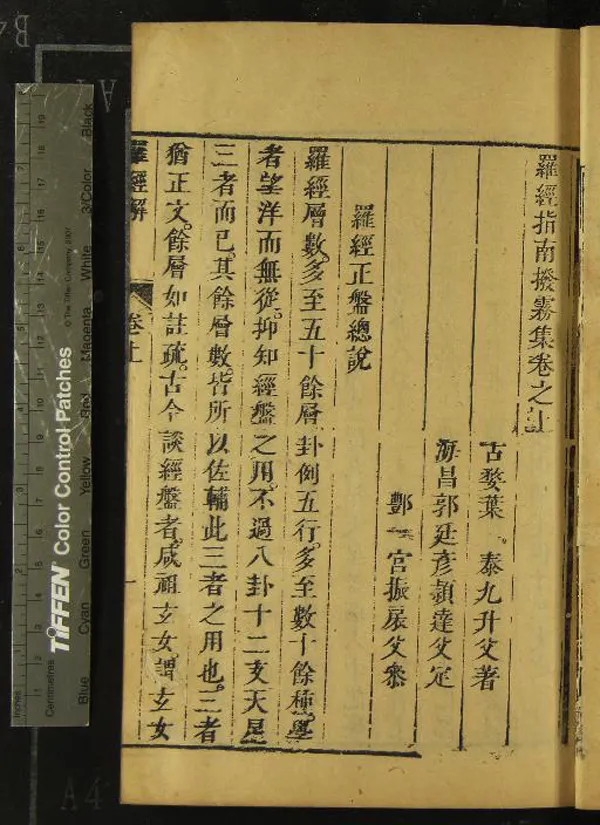 羅經指南撥霧集卷之上
古婺葉 泰九升父著
海昌郭廷彥頴達父定
酆 宮振宸父叅
羅經正盤總說
羅經層數。多至五十餘層卦例五行。多至數十餘種。學
者望洋而無從。抑知經盤之用。不過八卦十二支天星
三者而已。其餘層數。皆所以佐輔此三者之用也。三者
猶正文。餘層如註疏。古今談經盤者。咸祖玄女。謂玄女
羅經解 卷上
TIFFEN® Color Control Patches
© The Tiffen Company, 2007
Inches
Centimetres
Blue Cyan Green Yellow Red Magenta White 3/Color Black
A4